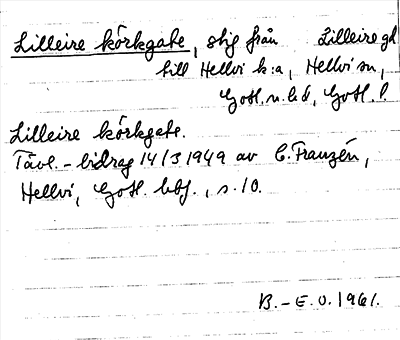 Lilleire körkgate, stig från Lilleire gd
till Hellvi k:a, Hellvi sn,
Gotl. n. hd, Gotl. l.
Lilleire körkgate.
Tävl.-bidrag 14/3 1949 av C. Franzén,
Hellvi, Gotl. , s. 10.
B.-E. O. 1961.